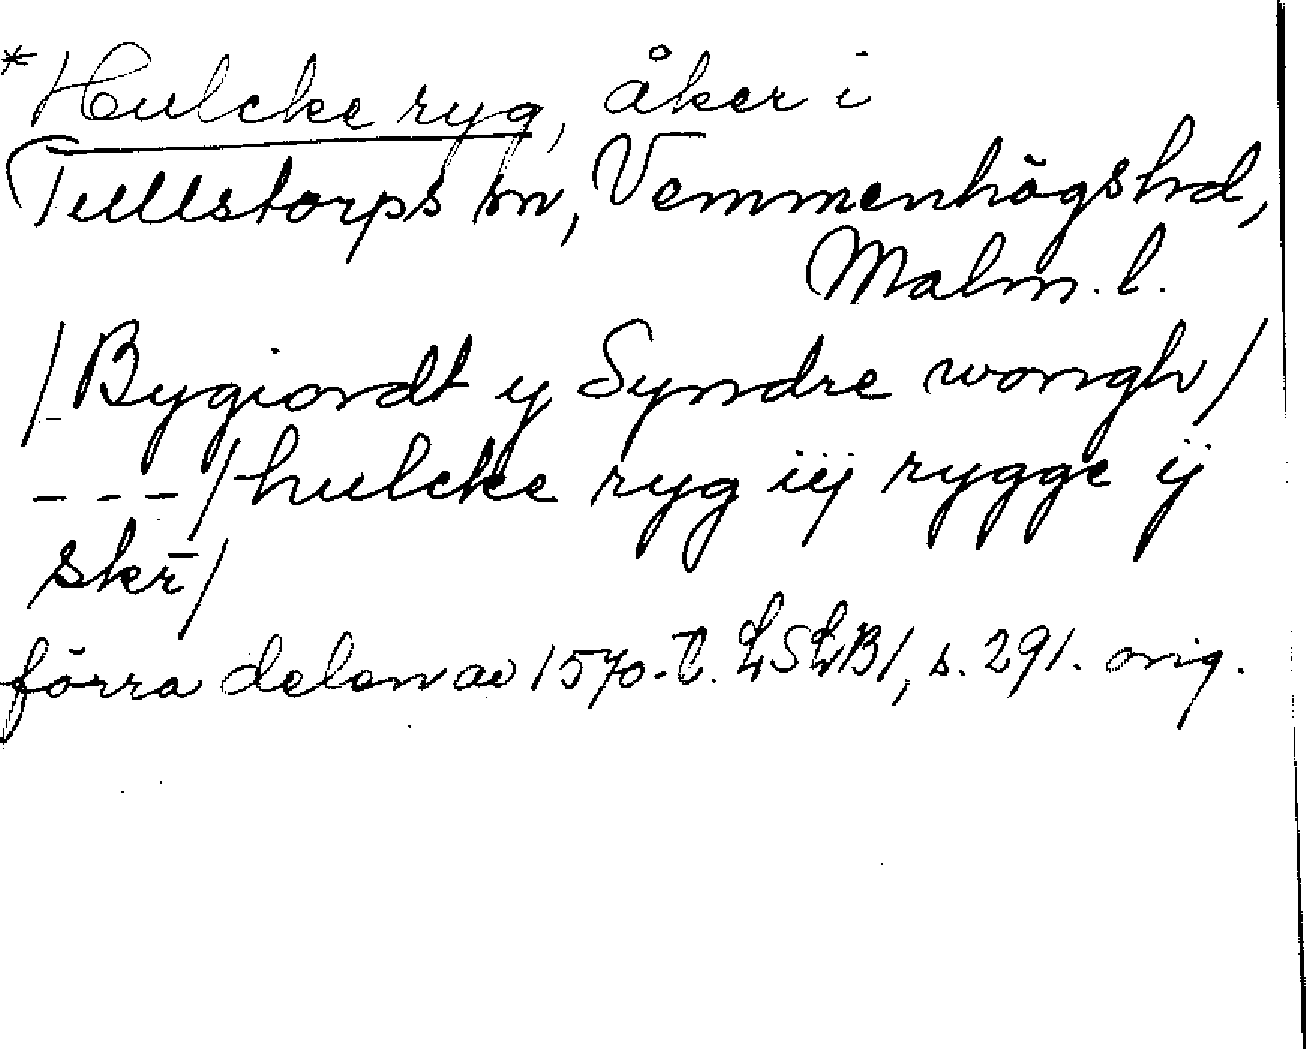 *Hulcke ryg, åker i
Tullstorps sn, Vemmenhögs hd,
Malm. l.
/Bygiordt y Syndre wongh/
---/hulcke ryg iij rygge ij
skr̄/
förra delen av 1570-t. LSLB1, s. 291. orig.